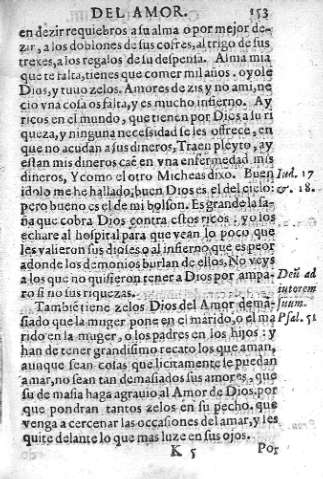 DEL AMOR. 153
en dezir requiebros a su alma o por mejor de-
zir, a los doblones de sus cofres, al trigo de sus
troxes, a los regalos de su despensa. Alma mia
que te falta, tienes que comer mil años. oyole
Dios, y tuuo zelos. Amores de zis y no a mi, ne
cio vna cosa os falta, y es mucho infierno. Ay
ricos en el mundo, que tienen por Dios a su ri
queza, y ninguna necessidad se les offrece, en
que no acudan a sus dineros, Traen pleyto, ay
estan mis dineros caé en vna enfermedad mis
dineros, Y como el otro Micheas dixo. Buen Iud. 17
idolo me he hallado, buen Dios es el del cielo: &. 18.
pero bueno es el de mi bolson. Es grande la sa-
ña que cobra Dios contra estos ricos: yo los
echare al hospital para que vean lo poco que
les valieron sus dioses o al infierno que es peor
adonde los demonios burlan de ellos. No veys
a los que no quisieron tener a Dios por ampa- Deũ ad
ro si no sus riquezas. iutorem
Tambiẽ tiene zelos Dios del Amor dema- suum.
siado que la muger pone en el marido, o el ma Psal. 51
rido en la muger, o los padres en los hijos: y
han de tener grandisimo recato los que aman,
aunque sean cosas que licitamente le puedan
amar, no sean tan demasiados sus amores, que
su demasia haga agrauio al Amor de Dios. por
que pondran tantos zelos en su pecho. que
venga a cercenar las occasiones del amar, y les
quite delante lo que mas luze en sus ojos.
K 5 Por